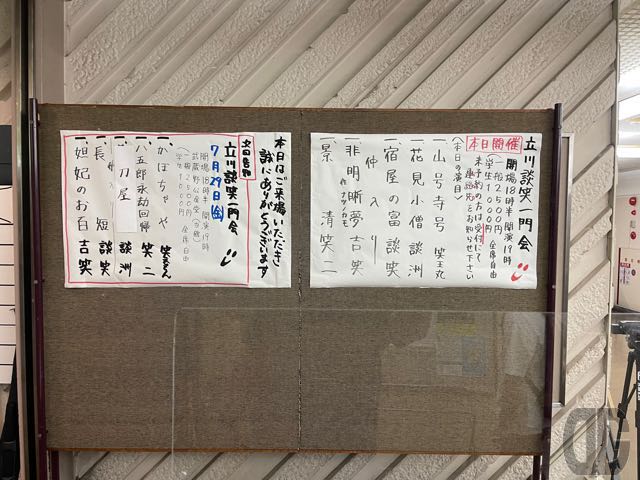 立川談笑一門会
本日開催
開場18時半 開演19時
一般2500円
学生1000円
全席自由
未予約の方は受付にて
お知らせ下さい
〈本日の演目〉
一 山号寺号 笑王丸
一 花見小僧 談洲
一 宿屋の富 談笑
仲入り
一 非明晰夢 吉笑
作 ナツノカモ
一 景清 笑二
本日はご来場いただき
誠にありがとうございます
次回告知
立川談笑一門会
7月29日(金)
開場18時半 開演19時
武蔵野公会堂
一般2500円
学生1000円
全席自由
一、かぼちゃや 笑えもん
一、五郎永劫回帰 笑二
刀屋 談洲
仲入り
一、長短 談笑
一、妲妃のお百 吉笑